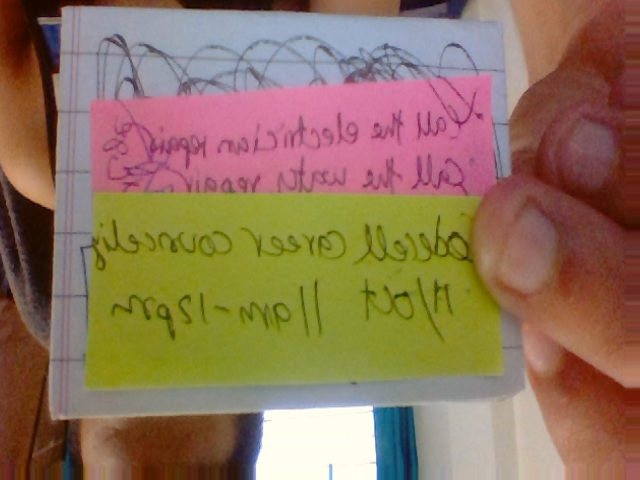 Call the electrician repair
Call the repair
Codecell career councelig
17/Oct 11am-12pm